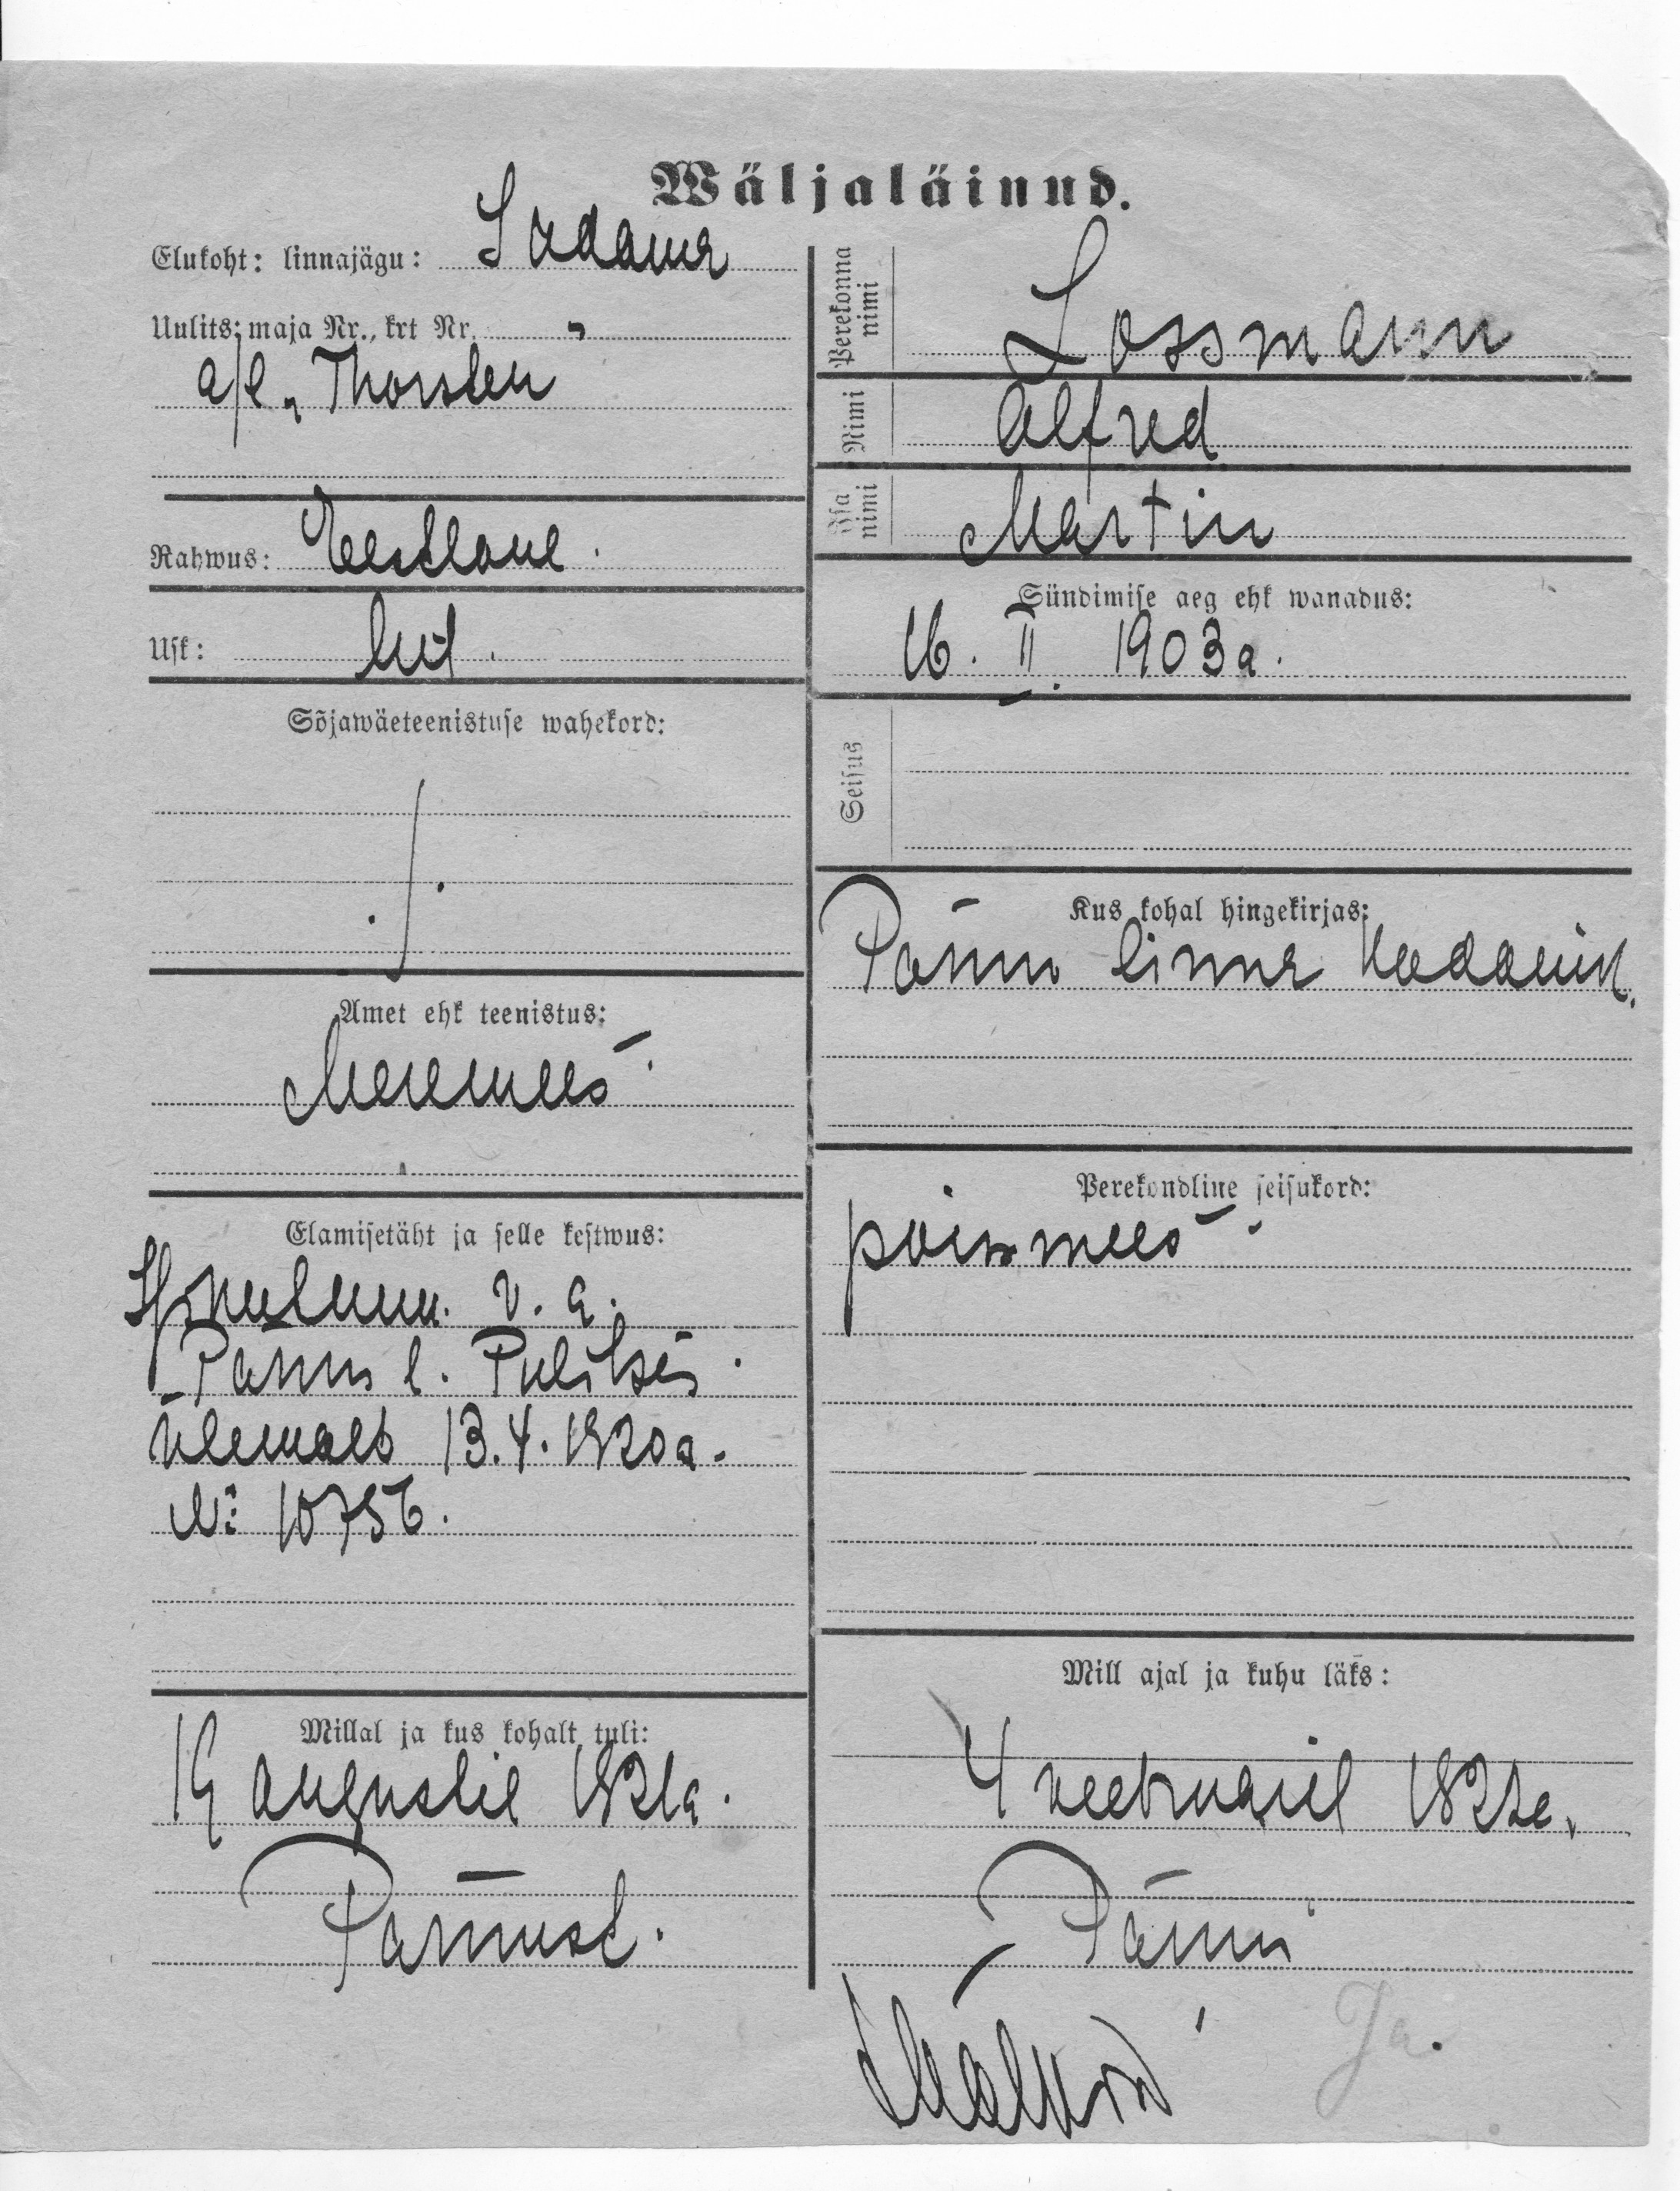 Wäljaläinud.
Elukoht: linnajägu: Sadama
Uulits; maja Nr., krt Nr.
a/l „Thorsten
Rahwus: Eestlane.
Usk: lut.
Sõjawäeteenistuse wahekord:
Amet ehk teenistus:
Meremees
Elamisetäht ja selle kestwus:
v. a.
Pärnu l. Politsei
ülemalt 13.4.1920a.
№ 10756.
Millal ja kus kohalt tuli:
19 augustil 1921a.
Pärnust.
Perekonna nimi Lossmann
Nimi Alfred
Isa nimi Martin
Sündimise aeg ehk wanadus:
16. II. 1903a.
Seisus
Kus kohal hingekirjas:
Pärnu linna kodanik.
Perekondline seisukord:
poissmees
Mill ajal ja kuhu läks:
4 veebruaril 1922a.
Pärnu
Ja.